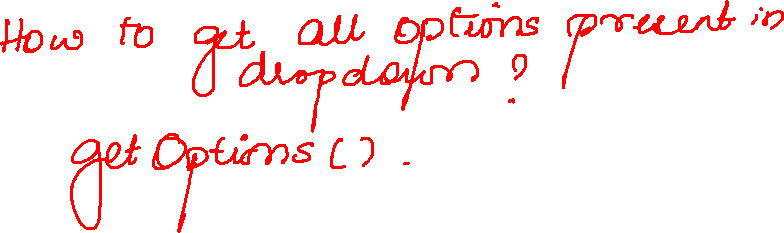 How to get all options present in
dropdown ?
getOptions().